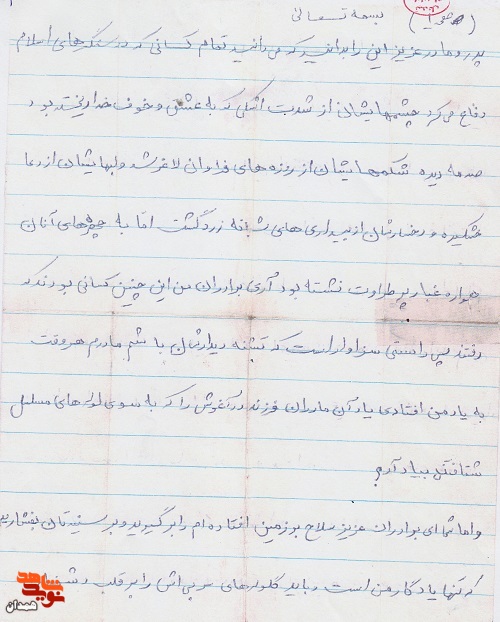 بسمه تعالی
پدر و مادر عزیز این را بدانید که می دانید تمام کسانی که در سنگرهای اسلام
دفاع می کرد چشمهایشان از شدت اشکی که به عشق و خوف خدا ریخته بود
صدمه دیده شکمهایشان از روزه های فراوان لاغر شد و لبهایشان از دعا
خشکیده و رخسارشان از بیداری های شبانه زرد گشت اما به چهره های آنان
همواره غبار پر طراوت نشسته بود آری برادران من این چنین کسانی بودند که
رفتند پس راستی سزاوار است که تشنه دیدارشان باشم مادرم هر وقت
به یاد من افتادی یاد آن مادران فرزند در آغوش را که به سوی لوله های مسلسل
شتافتند بیاد آر
و اما شما ای برادران عزیز سلاح بر زمین افتاده ام را برگیرید و بر سینه تان بفشارید
که تنها یادگار من است و باید گلوله های سربی اش را بر قلب دشمن
شاهد
نوید
همدان